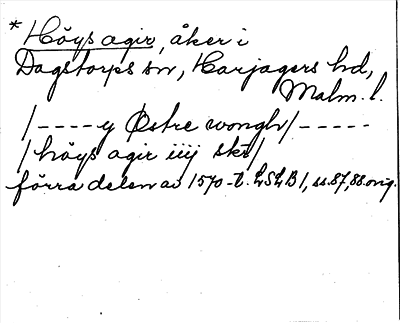 * Höÿs agir, åker i
Dagstorps sn, Harjagers hd,
Malm. l.
/----y Östre wongh/-----
/höÿs agir iiij sk /
förra delen av 1570-t. LSLB 1, ss.87,88.orig.